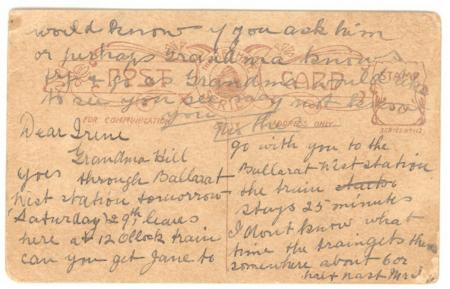 would know if you ask him
or perhaps Grandma knows
try & go as Grandma would like
to see you
you
POST CARD
STAMP
FOR COMMUNICATION
ADDRESS ONLY
Dear Irene
Grandma Hill
goes through Ballarat
West station tomorrow
Saturday 29th leaves
here at 12 Oclock train
can you get Jane to
go with you to the
Ballarat West station
the train
stays 25 minutes
I dont know what
time the train gets there
somewhere about 6 or